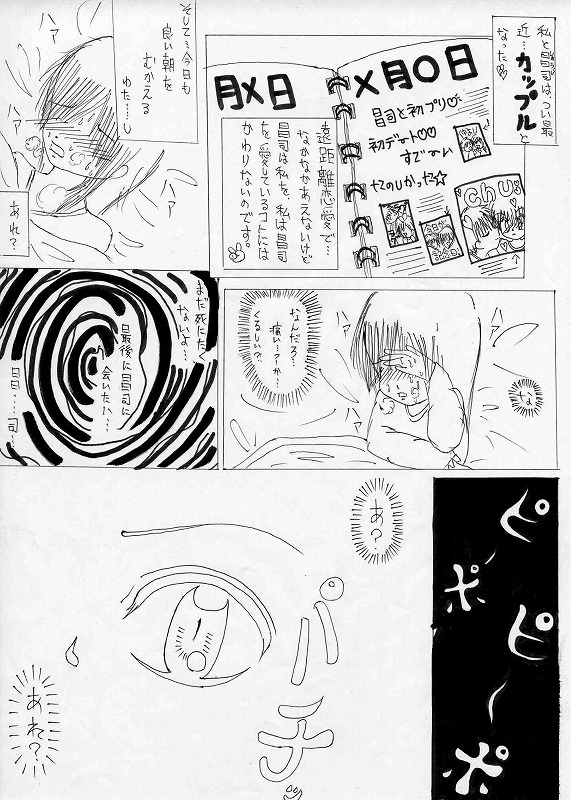 私と昌司は、つい最
近…カップルと
なった
X月〇日
昌司と初プリ♡
初デート♡♡
すご〜い
たのしかった☆
chu
月X日
遠距離恋愛で…
なかなかあえないけど
昌司は私を、私は昌司
を愛しているコトには
かわりないのです。
そして…今日も
良い朝を
むかえる
ハァ
ハァ
ハァ
あれ?
な
ハァ
ハァ
なんだろ…
痛い…?
くるしい?!
まだ死にたく
ないよ…
最後に昌司に
会いたい…
昌…司…
ピーポー
ピーポ
あ?
パチッ
あれ?